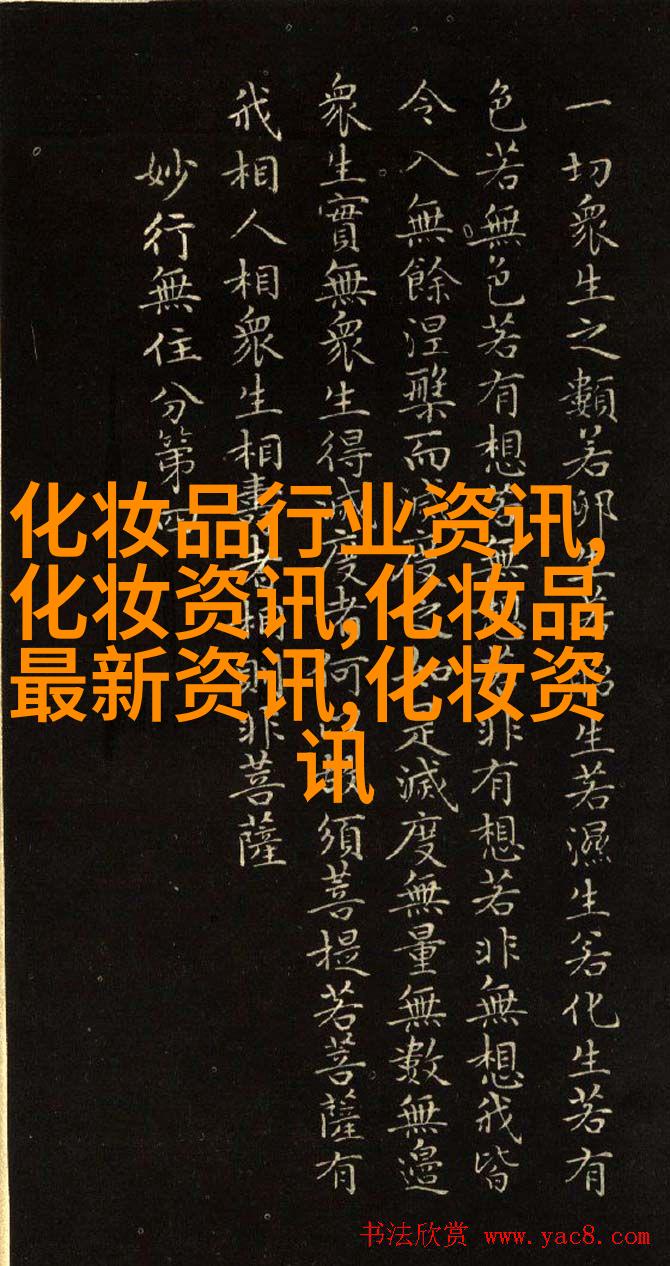 一切衆生之類若卵生若胎生若濕生若化生若有
色若無色若有想若無想若非有想若非無想我皆
令入無餘涅槃而滅度之如是滅度無量無數無邊
衆生實無衆生得滅度者何以故須菩提若菩薩有
我相人相衆生相壽者相則非菩薩
妙行無住分第四
化妆品行业资讯,
化妆资讯,化妆品
最新资讯,化妆资
讯
书法欣赏 www.yac8.com